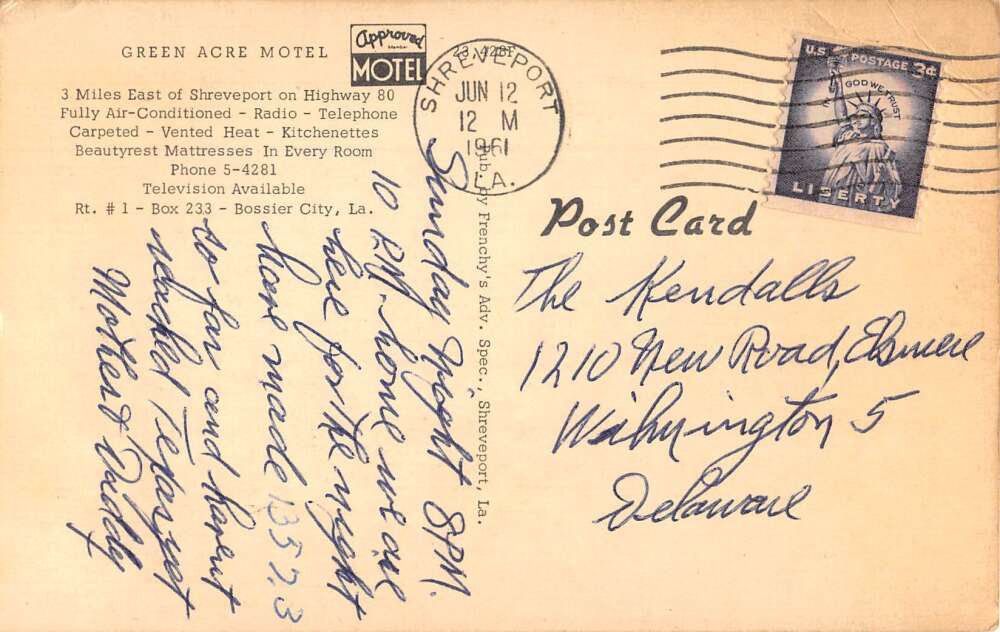 GREEN ACRE MOTEL
Approved
Member
MOTEL
3 Miles East of Shreveport on Highway 80
Fully Air-Conditioned - Radio - Telephone
Carpeted - Vented Heat - Kitchenettes
Beautyrest Mattresses In Every Room
Phone 5-4281
Television Available
Rt. # 1 - Box 233 - Bossier City, La.
SHREVEPORT
JUN 12
12 M
1961
LA.
U.S. POSTAGE 3¢
IN GOD WE TRUST
LIBERTY
Post Card
Pub. by Frenchy's Adv. Spec., Shreveport, La.
Sunday Night 8PM.
10 PM. home we are
here for the night
have made 1352.3
so far and havent
reached Texas yet
Mother & Daddy
The Kendalls
1210 New Road, Elsmere
Wilmington 5
Delaware